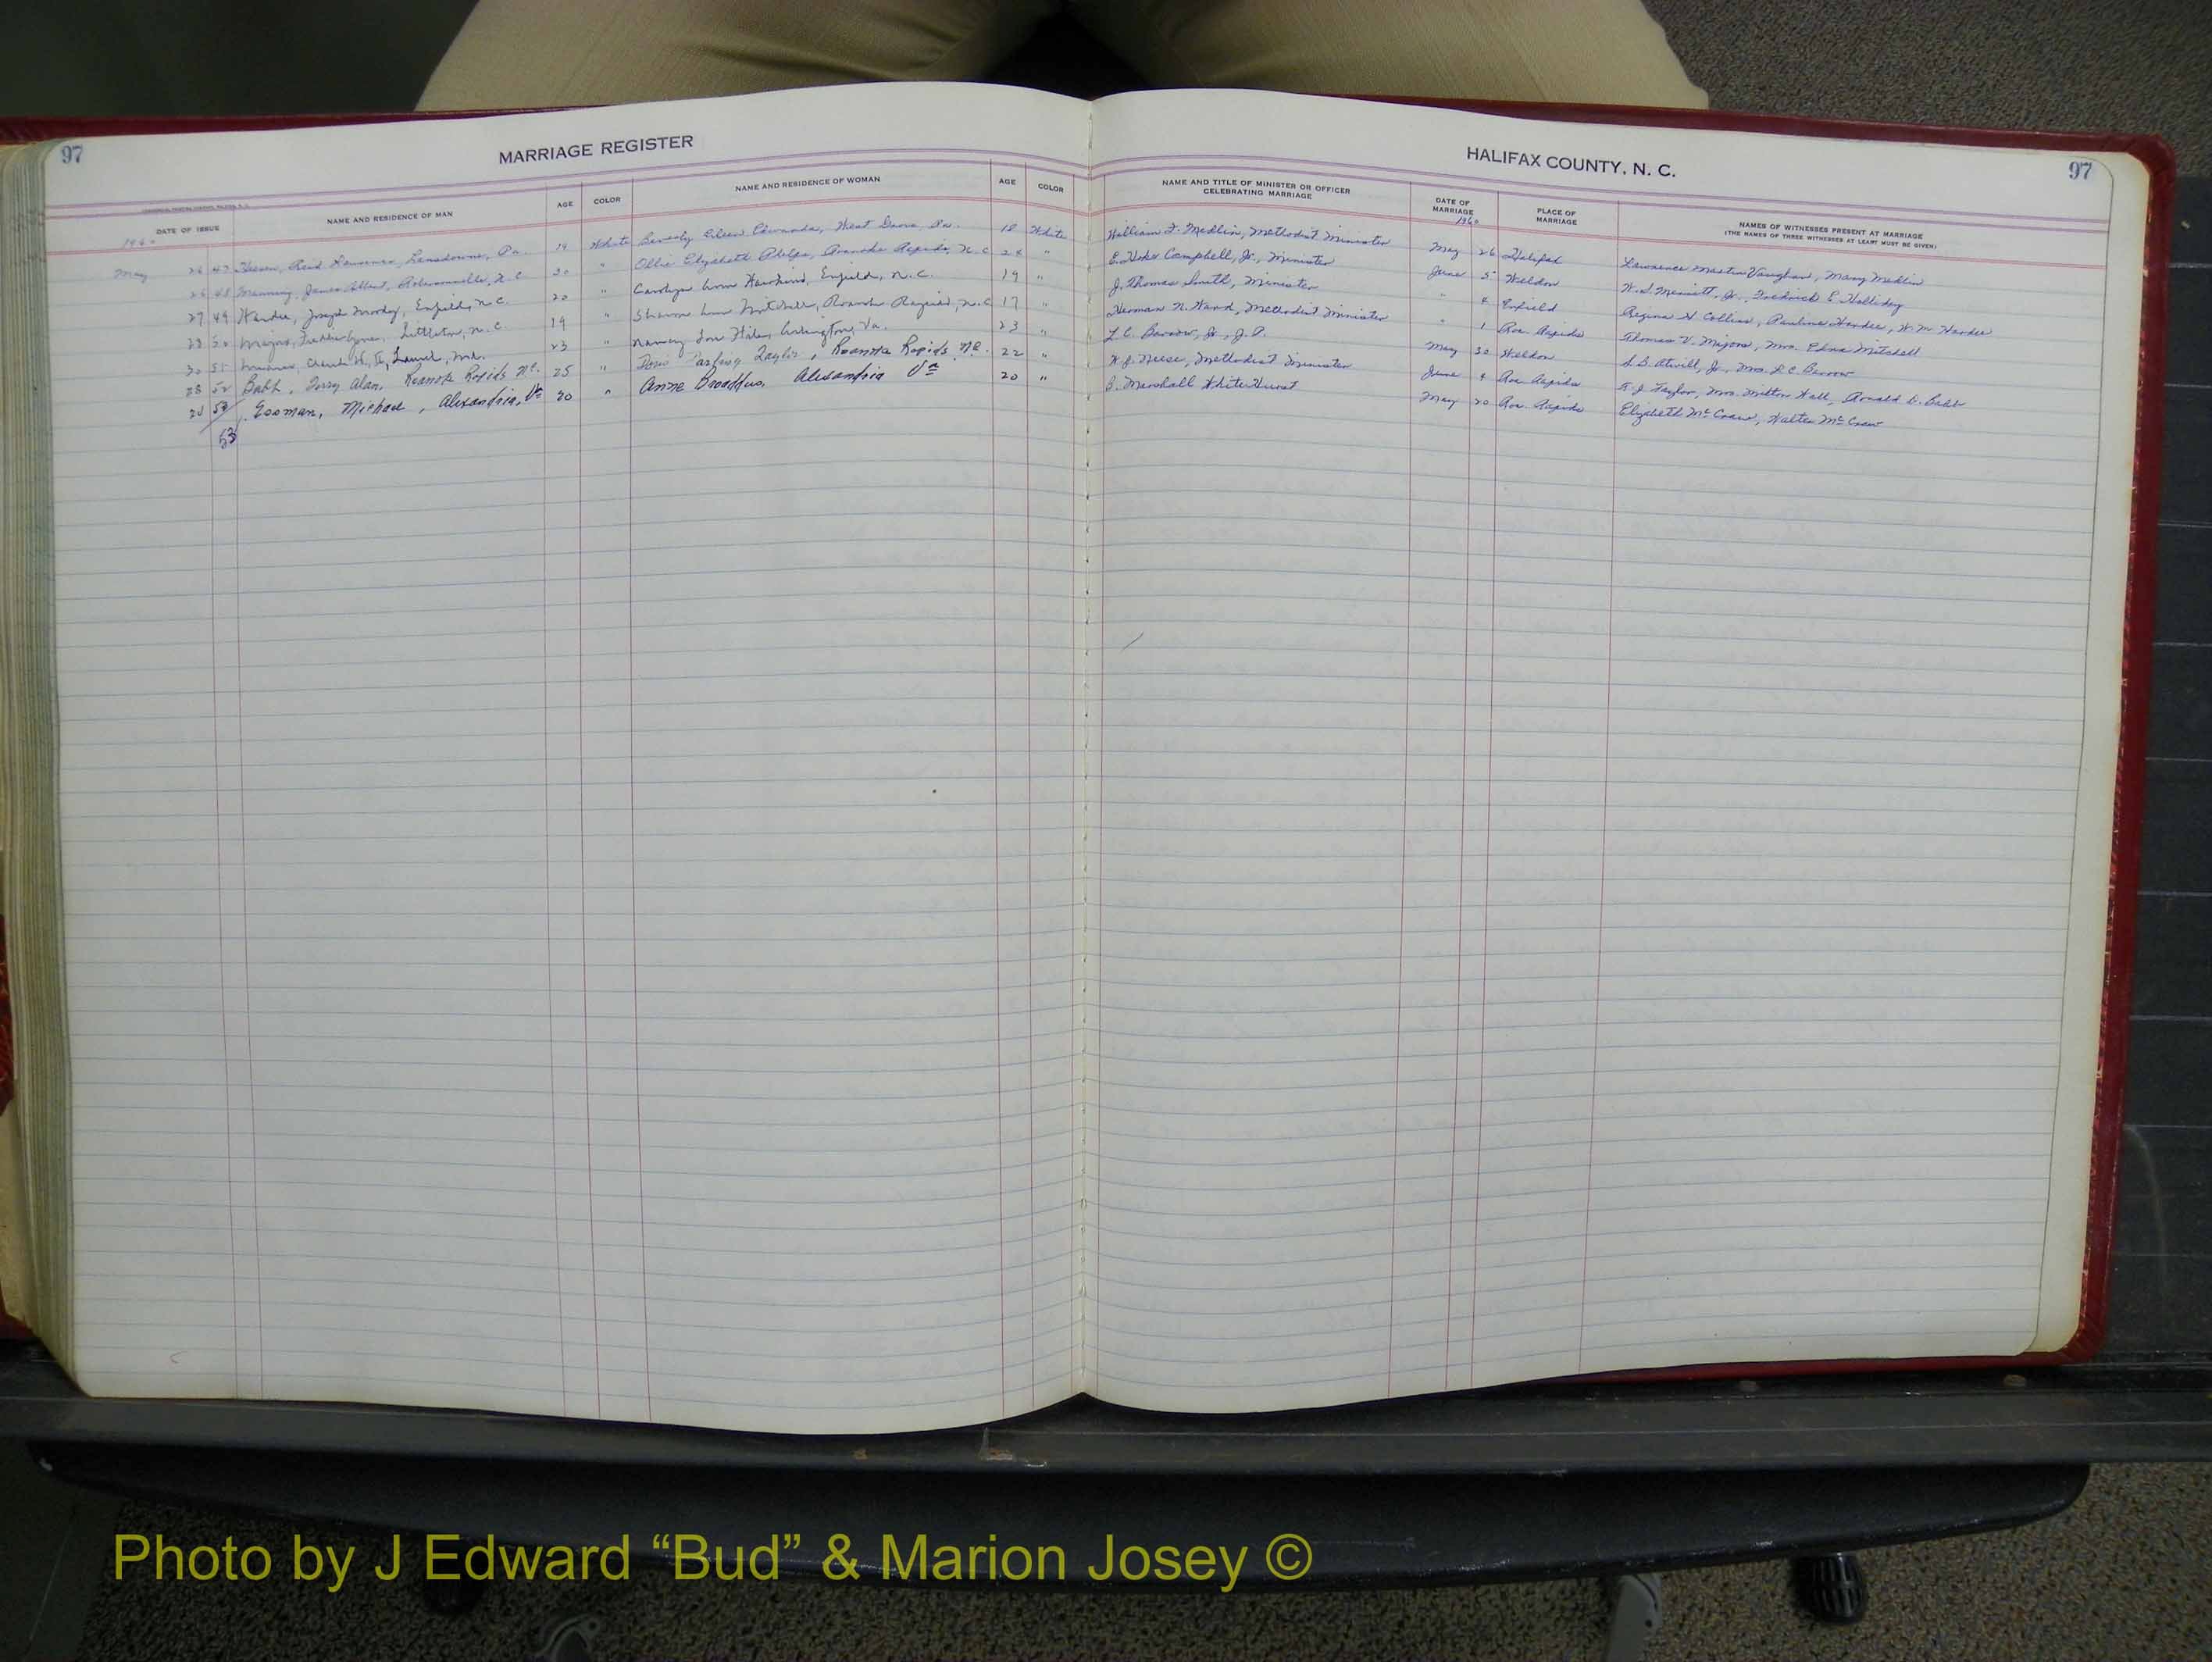 97
MARRIAGE REGISTER
HALIFAX COUNTY, N. C.
97
DATE OF ISSUE
NAME AND RESIDENCE OF MAN
AGE
COLOR
NAME AND RESIDENCE OF WOMAN
AGE
COLOR
NAME AND TITLE OF MINISTER OR OFFICER
CELEBRATING MARRIAGE
DATE OF
MARRIAGE
PLACE OF
MARRIAGE
NAMES OF WITNESSES PRESENT AT MARRIAGE
(THE NAMES OF THREE WITNESSES AT LEAST MUST BE GIVEN)
1960
1960
May 26 47 Reid Lawrence, Lansdowne, Pa. 19 White Beverly Eileen Edwards, West Pa. 18 White William F. Medlin, Methodist Minister May 26 Halifax Lawrence Martin Vaughan, Mary Medlin
26 48 Manning, James Albert, Robersonville, N.C. 30 " Ollie Elizabeth Phelps, Roanoke Rapids, N.C. 28 " E. Hoke Campbell, Jr., Minister June 5 Weldon W. S. Jr., Frederick E. Holliday
27 49 Hardee, Joseph Moody, Enfield, N.C. 20 " Carolyn Ann Hawkins, Enfield, N.C. 19 " J. Thomas Smith, Minister " 4 Enfield Regina H Collins, Pauline Hardee, W. M. Hardee
28 50 Littleton, N.C. 19 " Mitchell, Roanoke Rapids, N.C. 17 " Herman N. Ward, Methodist Minister " 1 Roa. Rapids Thomas V. Majors, Mrs. Edna Mitchell
30 51 Laurel, Md. 23 " Nancy Arlington, Va. 23 " L. C. Barrow, Jr., J.P. May 30 Weldon S. B. Atwill, Jr., Mrs. L. C. Barrow
28 52 Babb, Terry Alan, Roanoke Rapids N.C. 25 " Taylor, Roanoke Rapids N.C. 22 " W. J. Neese, Methodist Minister June 4 Roa. Rapids R. J. Taylor, Mrs. Milton Hall, Arnold D. Babb
20 53 Michael, Alexandria, Va 20 " Anne Broaddus, Alexandria Va 20 " B. Marshall White Hurst May 20 Roa. Rapids Elizabeth McCraw, Walter McCraw
53
Photo by J Edward “Bud” & Marion Josey ©